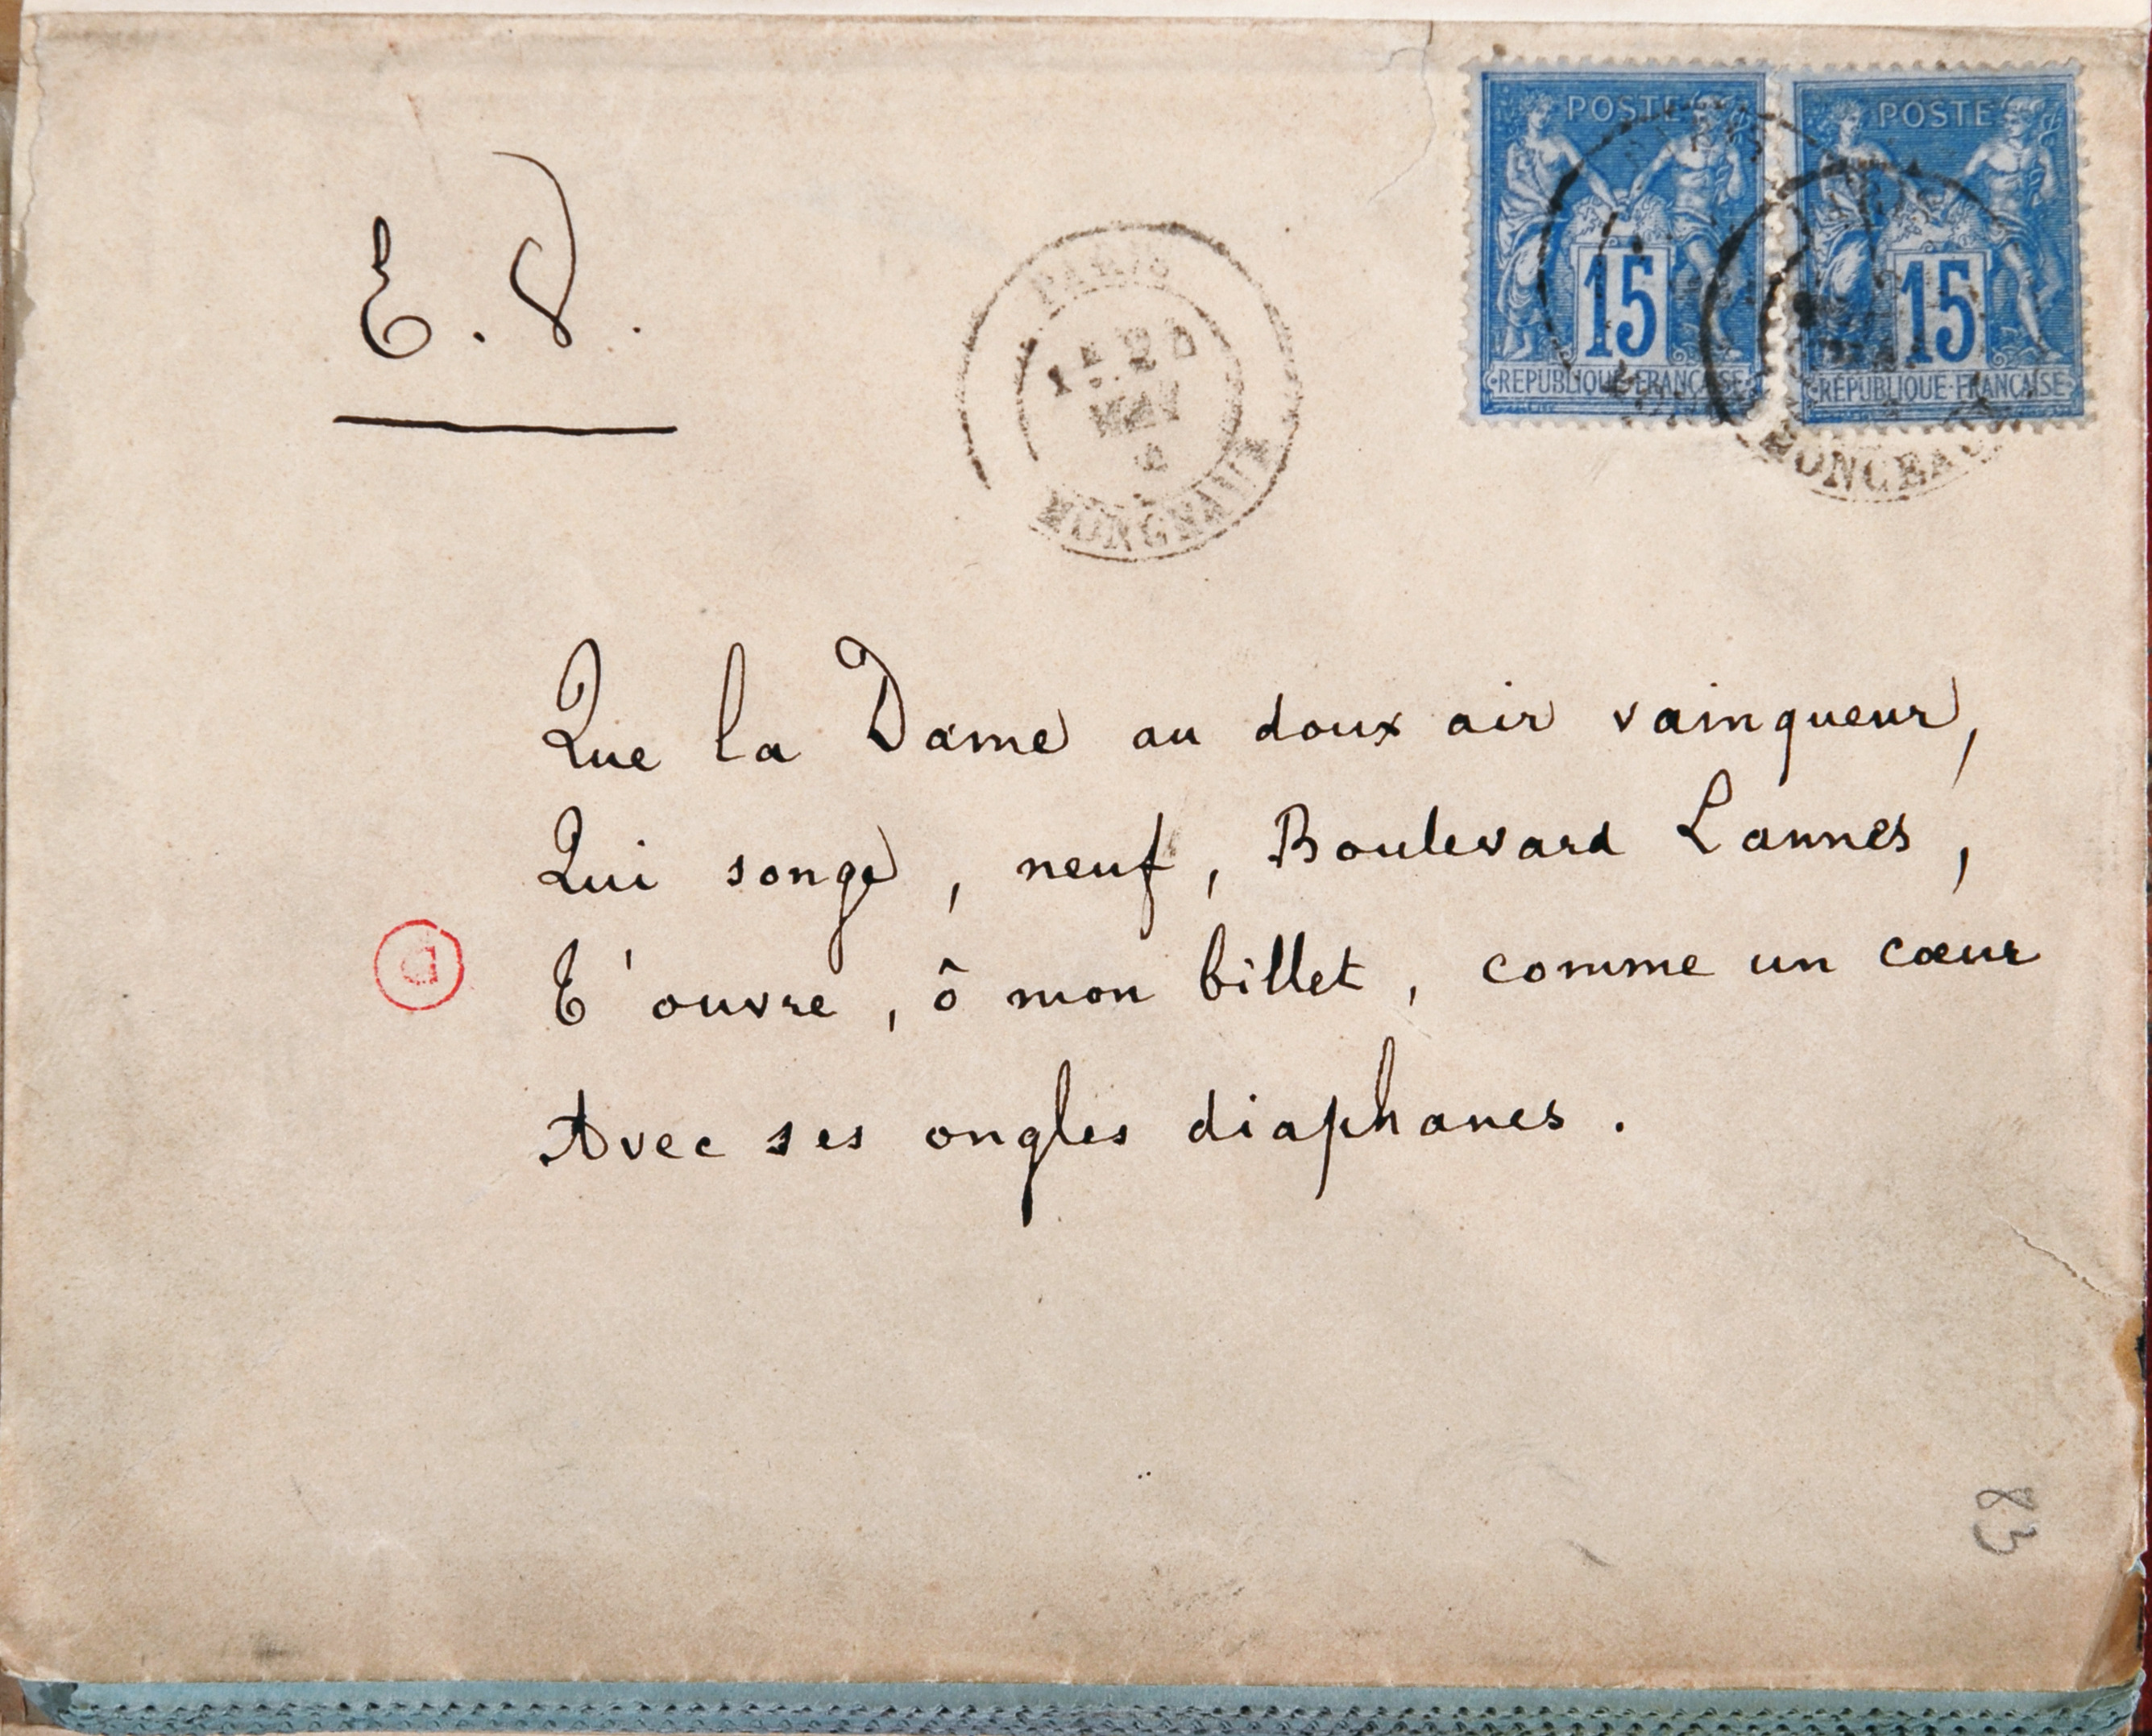 E. V.
PARIS
MONCEAUX
POSTE
15
REPUBLIQUE FRANCAISE
POSTE
15
REPUBLIQUE FRANCAISE
MONCEAUX
Que la Dame au doux air vainqueur,
Qui songe, neuf, Boulevard Lannes,
T'ouvre, ô mon billet, comme un cœur
Avec ses ongles diaphanes.
D
83